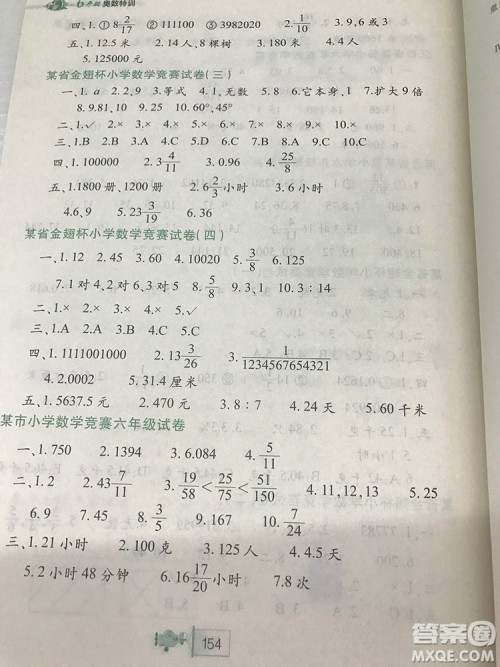 6年级奥数特训
四、1. ① 8 2/11 ② 111111 ③ 3982020 2. 5/6
五、1. 12.5 米 2. 11/24 米 3. 12 人,8 棵树 4. 3/4 米
5. 125000 元
某省金翅杯小学数学竞赛试卷(三)
一、1. a 2. 2,9 3. 等式 4. 1,无数 5. 6. 它本身,1 7. 扩大 9 倍
8. 9.81,10 9. 10. 60°,45°
二、1. ✓ 2. × 3. × 4. × 5. ×
三、1. B 2. B 3. A 4. C 5. C
四、1. 100000 2. 3 4/11 3. 0.96 4. 25/8
五、1. 1800 册、1200 册 2. 6 2/3 小时 3. 6 小时
4. 6,9 5. 23 2/19 6. 36
某省金翅杯小学数学竞赛试卷(四)
一、1. 12 2. 45 3. 60 4. 10020 5. 3/8 6. 135
7. 1 对 4,2 对 6,3 对 5 8. 5/8 9. 10. 3 : 14
二、1. × 2. × 3. × 4. × 5. ✓
三、1. A 2. A 3. D 4. B 5. C
四、1. 1111001000 2. 13 3/26 3. 1/1234567654321
4. 2.0002 5. 31.4 厘米 6. 111/20
五、1. 5637.5 元 2. 470 元 3. 8 : 7 4. 24 天 5. 60 千米
某市小学数学竞赛六年级试卷
一、1. 750 2. 1394 3. 6.084 4. 5/111
二、1. 2 2. 43 7/11 3. 19/58 < 25/54 < 51/150 4. 11,12,13 5. 25
6. 9 7. 45 8. 3/5 9. 15 10. 7/24
三、1. 21 小时 2. 100 克 3. 15 人 4. 4.5 天
5. 2 小时 48 分钟 6. 16 17/20 小时 7. 8 次
154
答案圈
MXQE.COM